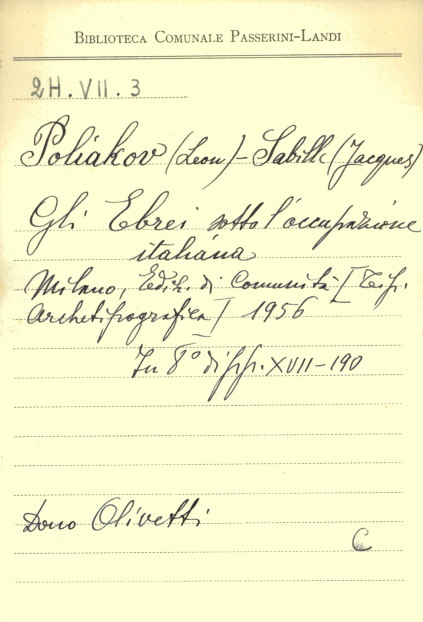 BIBLIOTECA COMUNALE PASSERINI-LANDI
2H.VII.3
Poliakov (Leon) - Sabille (Jacques)
Gli Ebrei sotto l'occupazione
italiana
Milano, Ediz. di Comunità [Tip.
Archetipografica] 1956
In 8° di pp. XVII-190
Dono Olivetti
C